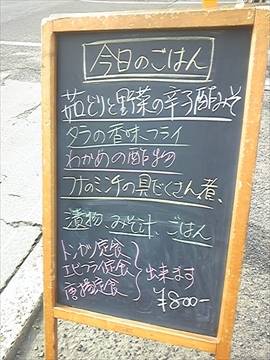 今日のごはん
茹どりと野菜の辛子酢みそ
タラの香味フライ
わかめの酢物
フキのミンチの具だくさん煮、
漬物、みそ汁、ごはん
トンカツ定食
エビフライ定食
唐揚定食
出来ます
¥800-